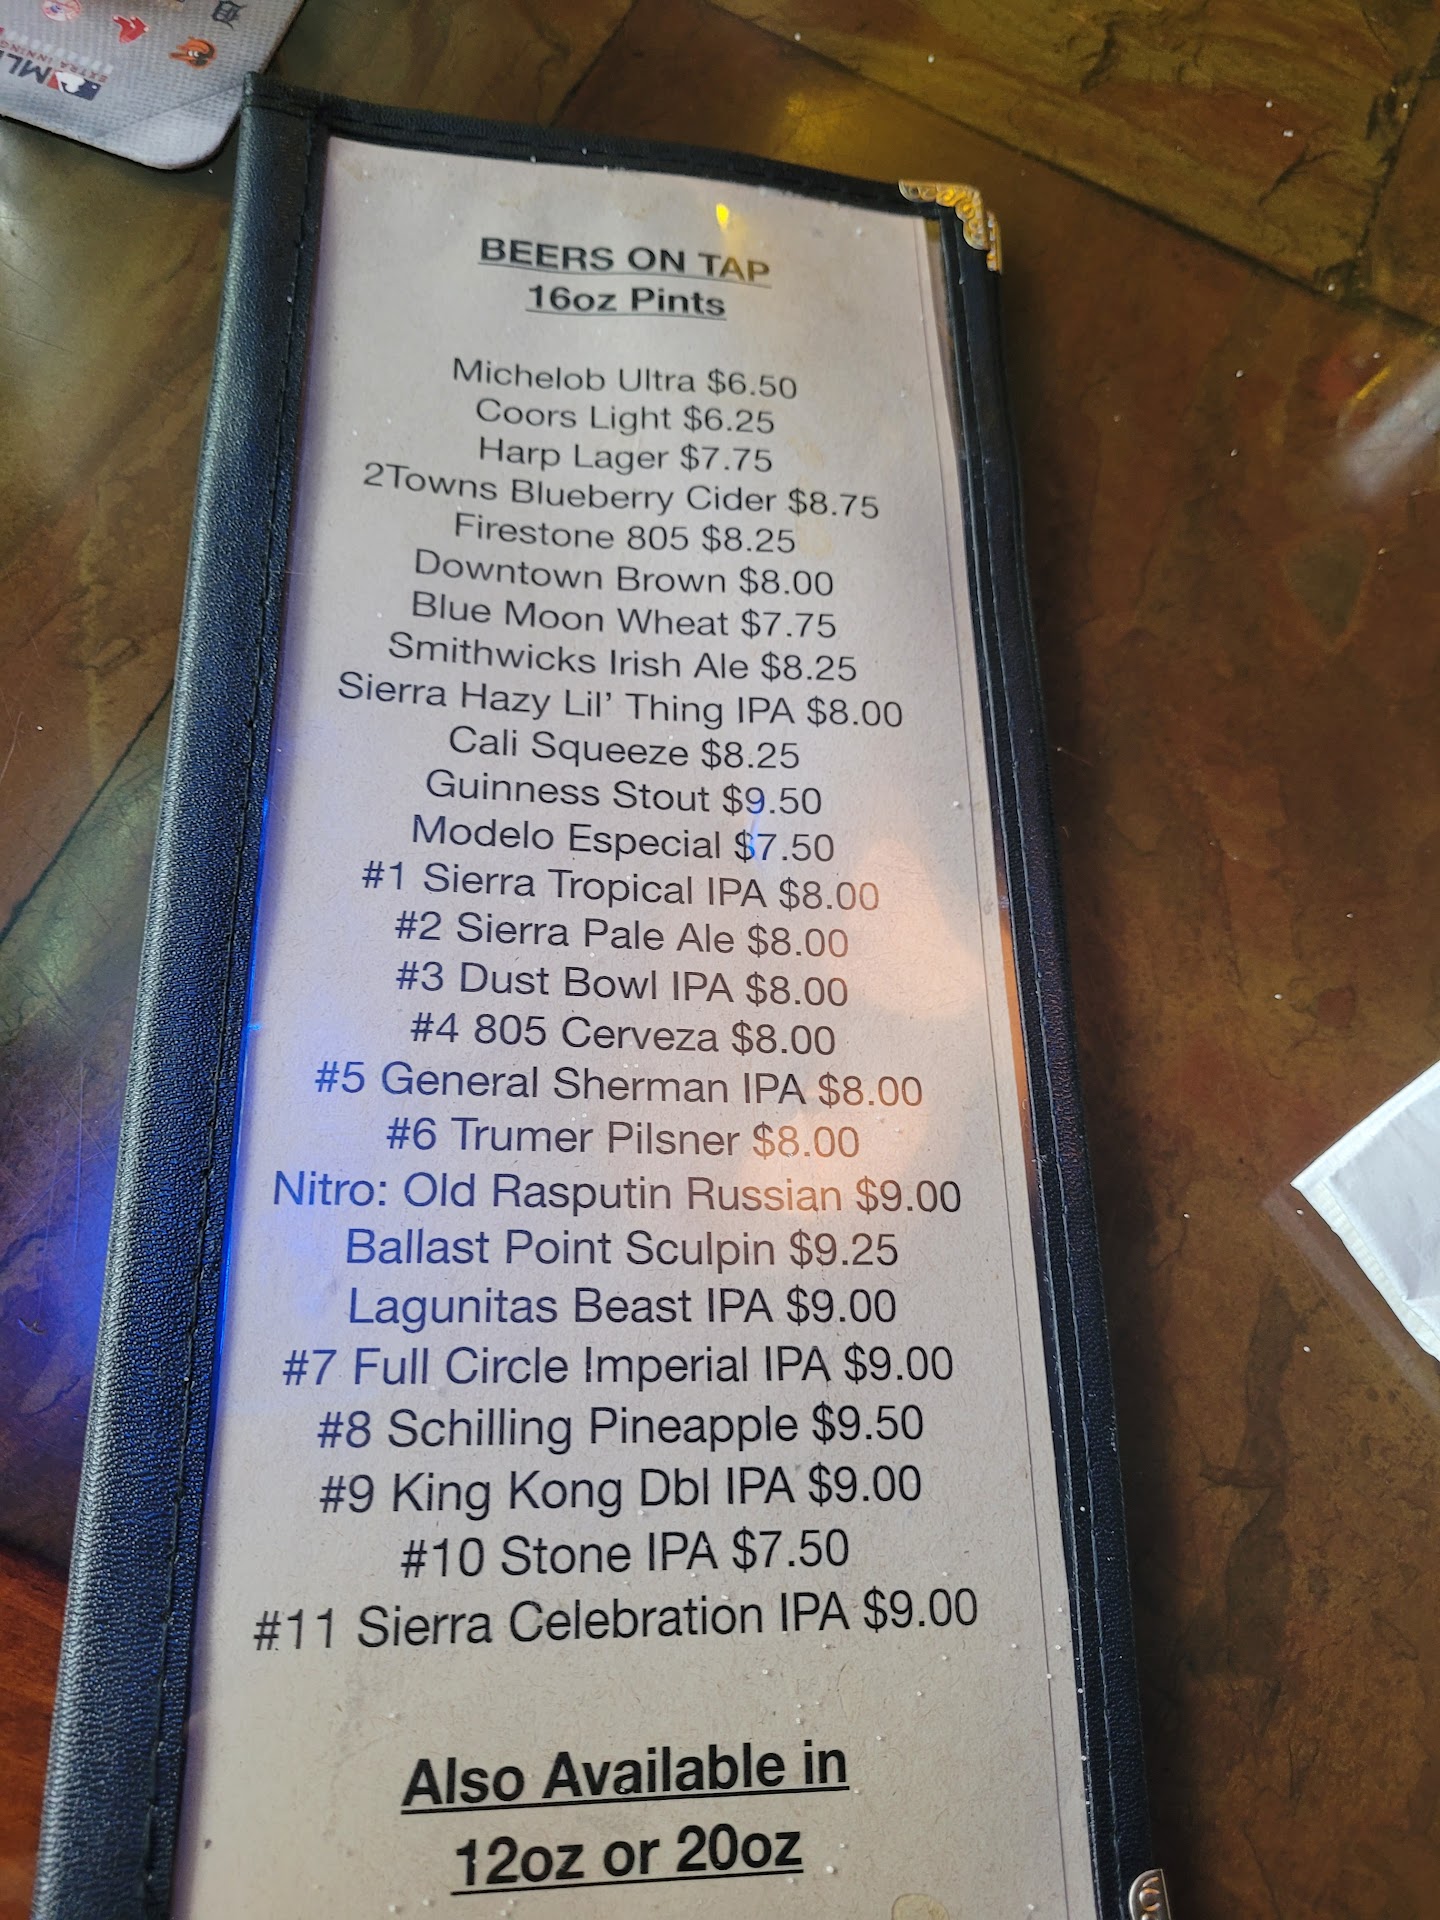 MLB
EXTRA INNINGS
BEERS ON TAP
16oz Pints
Michelob Ultra $6.50
Coors Light $6.25
Harp Lager $7.75
2Towns Blueberry Cider $8.75
Firestone 805 $8.25
Downtown Brown $8.00
Blue Moon Wheat $7.75
Smithwicks Irish Ale $8.25
Sierra Hazy Lil' Thing IPA $8.00
Cali Squeeze $8.25
Guinness Stout $9.50
Modelo Especial $7.50
#1 Sierra Tropical IPA $8.00
#2 Sierra Pale Ale $8.00
#3 Dust Bowl IPA $8.00
#4 805 Cerveza $8.00
#5 General Sherman IPA $8.00
#6 Trumer Pilsner $8.00
Nitro: Old Rasputin Russian $9.00
Ballast Point Sculpin $9.25
Lagunitas Beast IPA $9.00
#7 Full Circle Imperial IPA $9.00
#8 Schilling Pineapple $9.50
#9 King Kong Dbl IPA $9.00
#10 Stone IPA $7.50
#11 Sierra Celebration IPA $9.00
Also Available in
12oz or 20oz